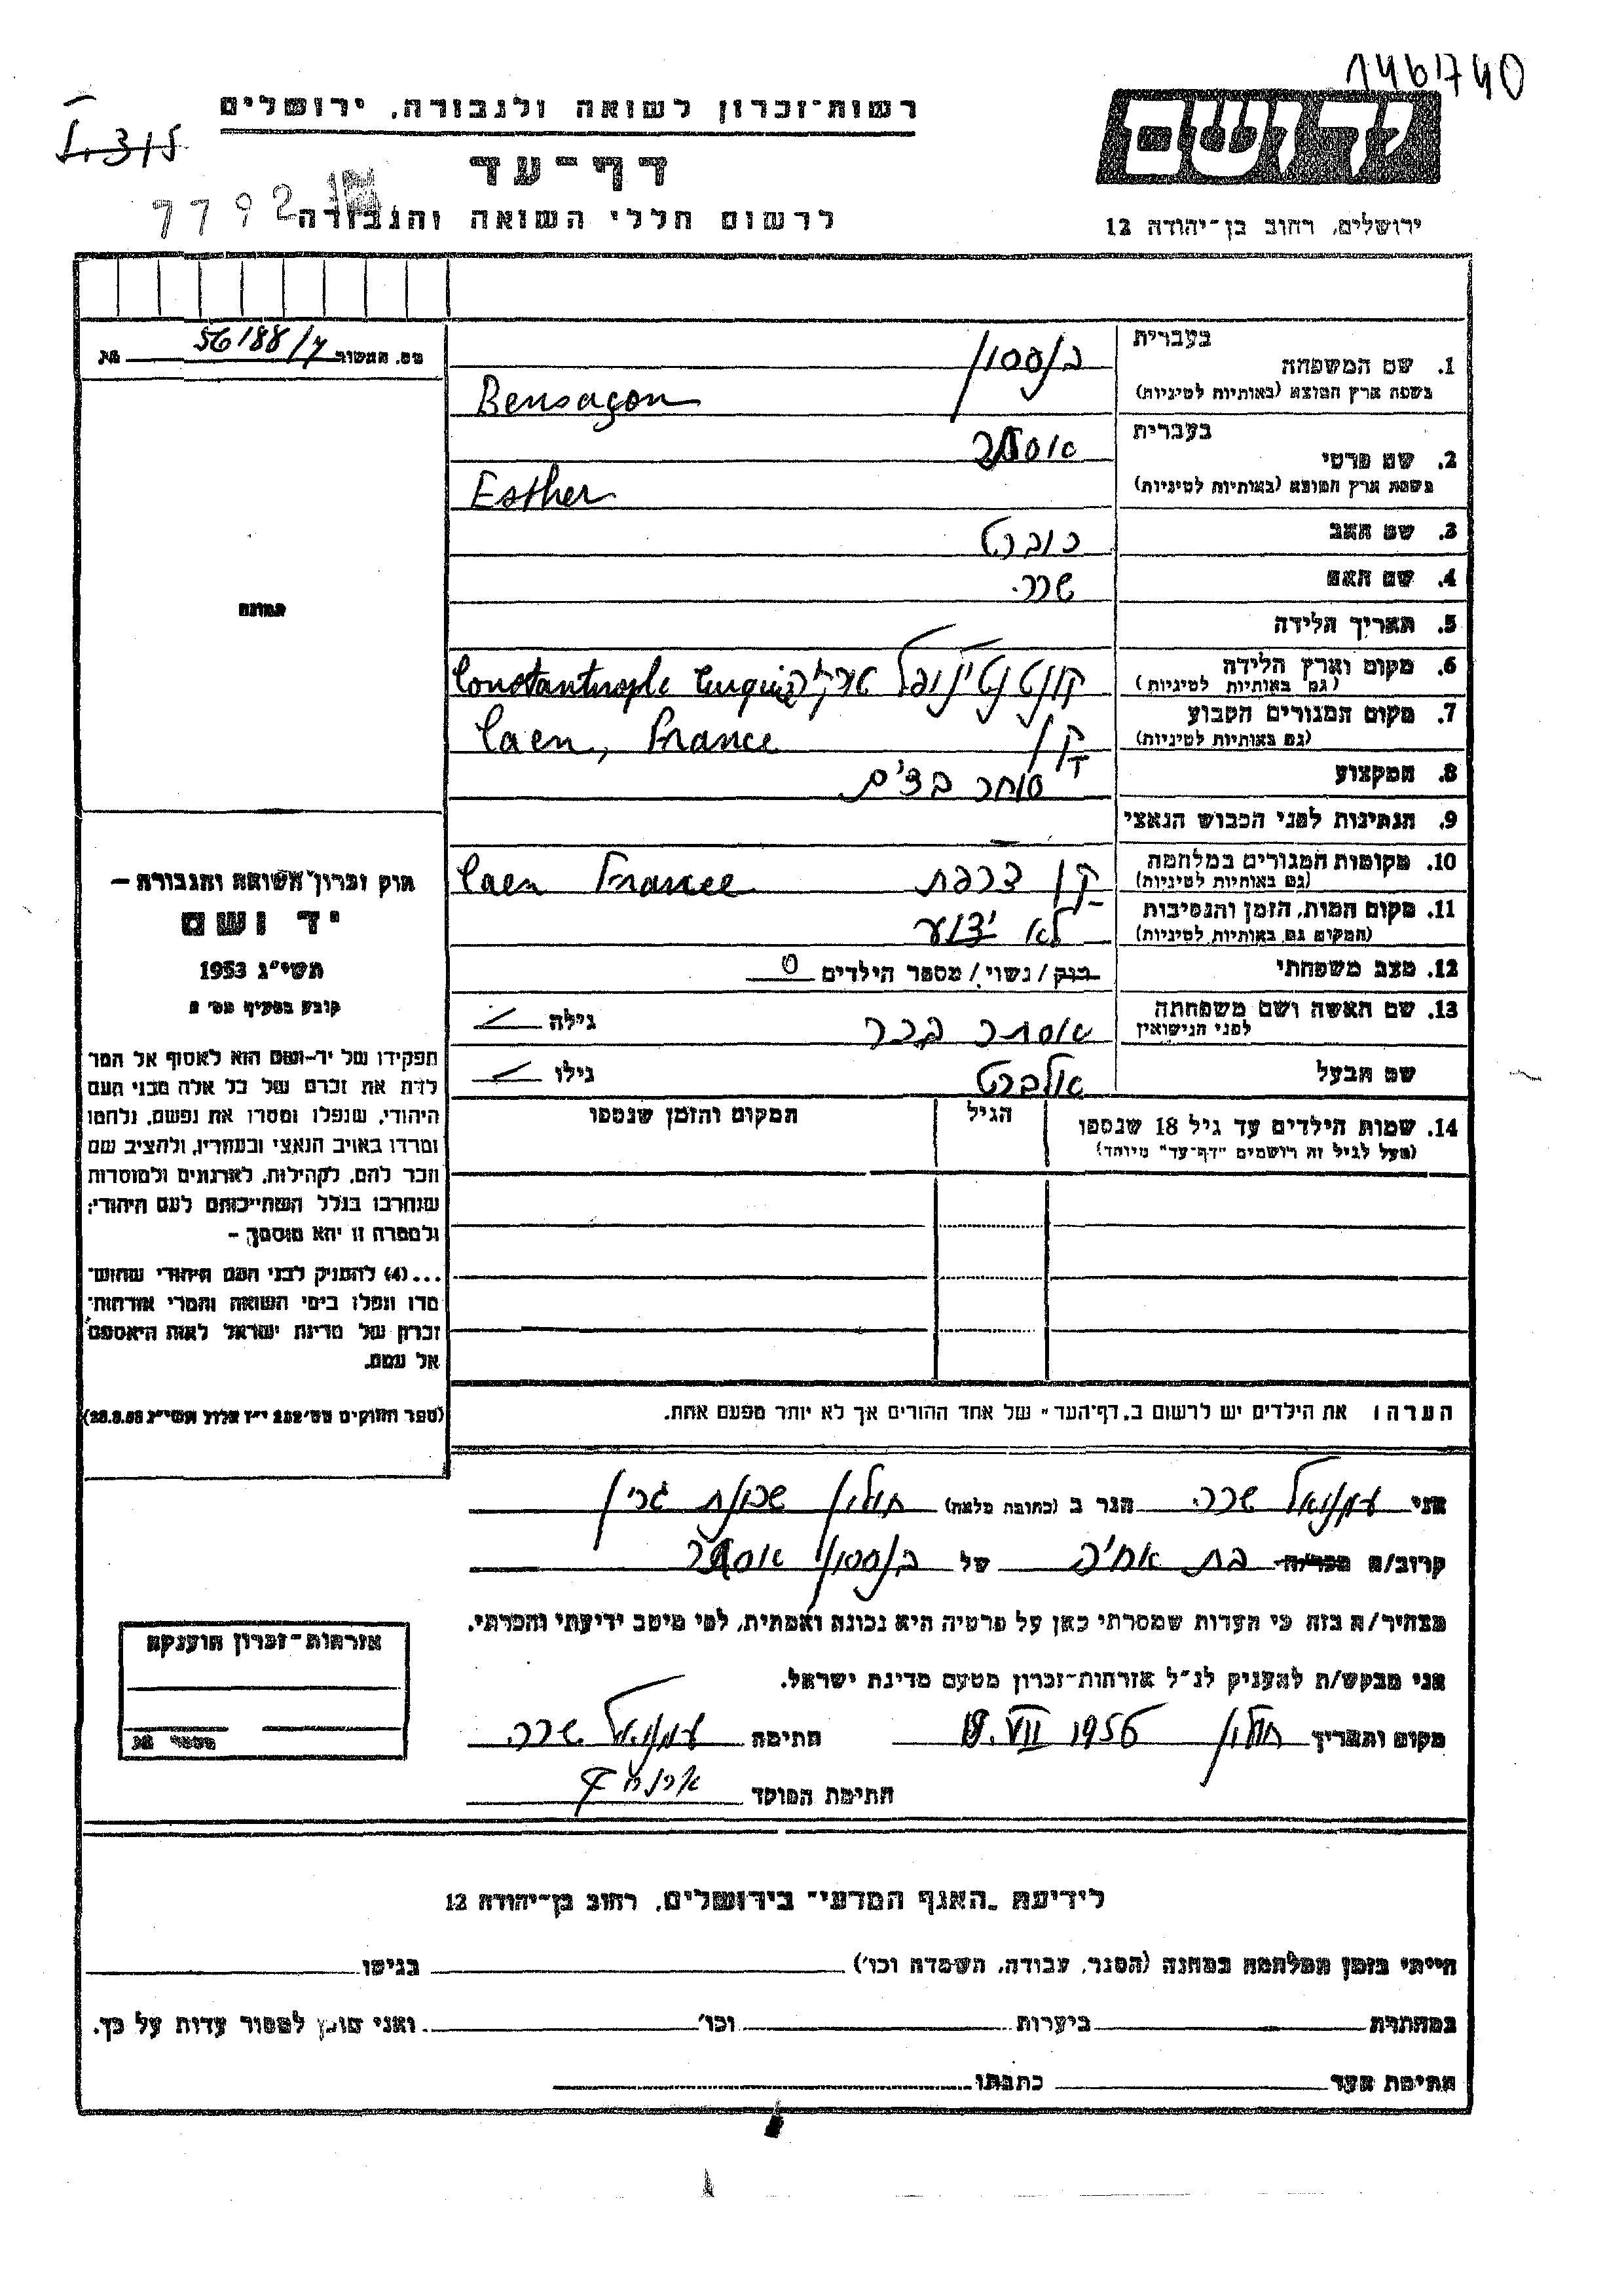 146740
רשות־זכרון לשואה ולגבורה, ירושלים
4315
דף־עד
7792
לרשום חללי השואה והגבורה
ירושלים, רחוב בן־יהודה 12
מס. האשור 56188/ מת
בעברית
1. שם המשפחה
בשפת ארץ המוצא (באותיות לטיניות) Bensaçon
בעברית
2. שם פרטי אסתר
בשפת ארץ המוצא (באותיות לטיניות) Esther
3. שם האב
4. שם האם שרה
5. תאריך הלידה
6. מקום וארץ הלידה
(גם באותיות לטיניות) Constantinople Turquie
7. מקום המגורים הקבוע קן Caen, France
(גם באותיות לטיניות)
8. המקצוע סוחר בצים
9. הנתינות לפני הכבוש הנאצי
10. מקומות המגורים במלחמה קן צרפת Caen France
(גם באותיות לטיניות)
11. מקום המות, הזמן והנסיבות לא ידוע
(המקום גם באותיות לטיניות)
12. מצב משפחתי רוק / נשוי / מספר הילדים 0
13. שם האשה ושם משפחתה אסתר בכר גילה
לפני הנישואין
שם הבעל אלברט גילו
14. שמות הילדים עד גיל 18 שנספו הגיל המקום והזמן שנספו
(מעל לגיל זה רושמים "דף־עד" מיוחד)
הערה: את הילדים יש לרשום ב„דף־העד" של אחד ההורים אך לא יותר מפעם אחת.
תמונה
חוק זכרון השואה והגבורה –
יד ושם
תשי"ג 1953
קובע בסעיף מס' 2
תפקידו של יד־ושם הוא לאסוף אל המו
לדת את זכרם של כל אלה מבני העם
היהודי, שנפלו ומסרו את נפשם, נלחמו
ומרדו באויב הנאצי ובעוזריו, ולהציב שם
וזכר להם, לקהילות, לארגונים ולמוסדות
שנחרבו בגלל השתייכותם לעם היהודי;
ולמטרה זו יהא מוסמך –
...(4) להעניק לבני העם היהודי שהוש־
מדו ונפלו בימי השואה והמרי אזרחות־
זכרון של מדינת ישראל לאות היאספם
אל עמם.
(ספר החוקים מס' 132 י"ז אלול תשי"ג 28.8.53)
אני עמנואל שרה הגר ב (כתובת מלאה) חולון שכונת גרין
קרוב/ה מכר/ה בת אחיה של בנסון אסתר
מצהיר/ה בזה כי העדות שמסרתי כאן על פרטיה היא נכונה ואמתית, לפי מיטב ידיעתי והכרתי.
אני מבקש/ת להעניק לנ"ל אזרחות־זכרון מטעם מדינת ישראל.
מקום ותאריך חולון 18.VII 1956 חתימה עמנואל שרה
חתימת הפוקד
אזרחות־זכרון הוענקה
מספר מת
לידיעת „האגף המדעי" בירושלים, רחוב בן־יהודה 12
הייתי בזמן המלחמה במחנה (הסגר, עבודה, השמדה וכו') בגיטו
במחתרת ביערות וכו' ואני מוכן למסור עדות על כך.
חתימת העד כתבתו